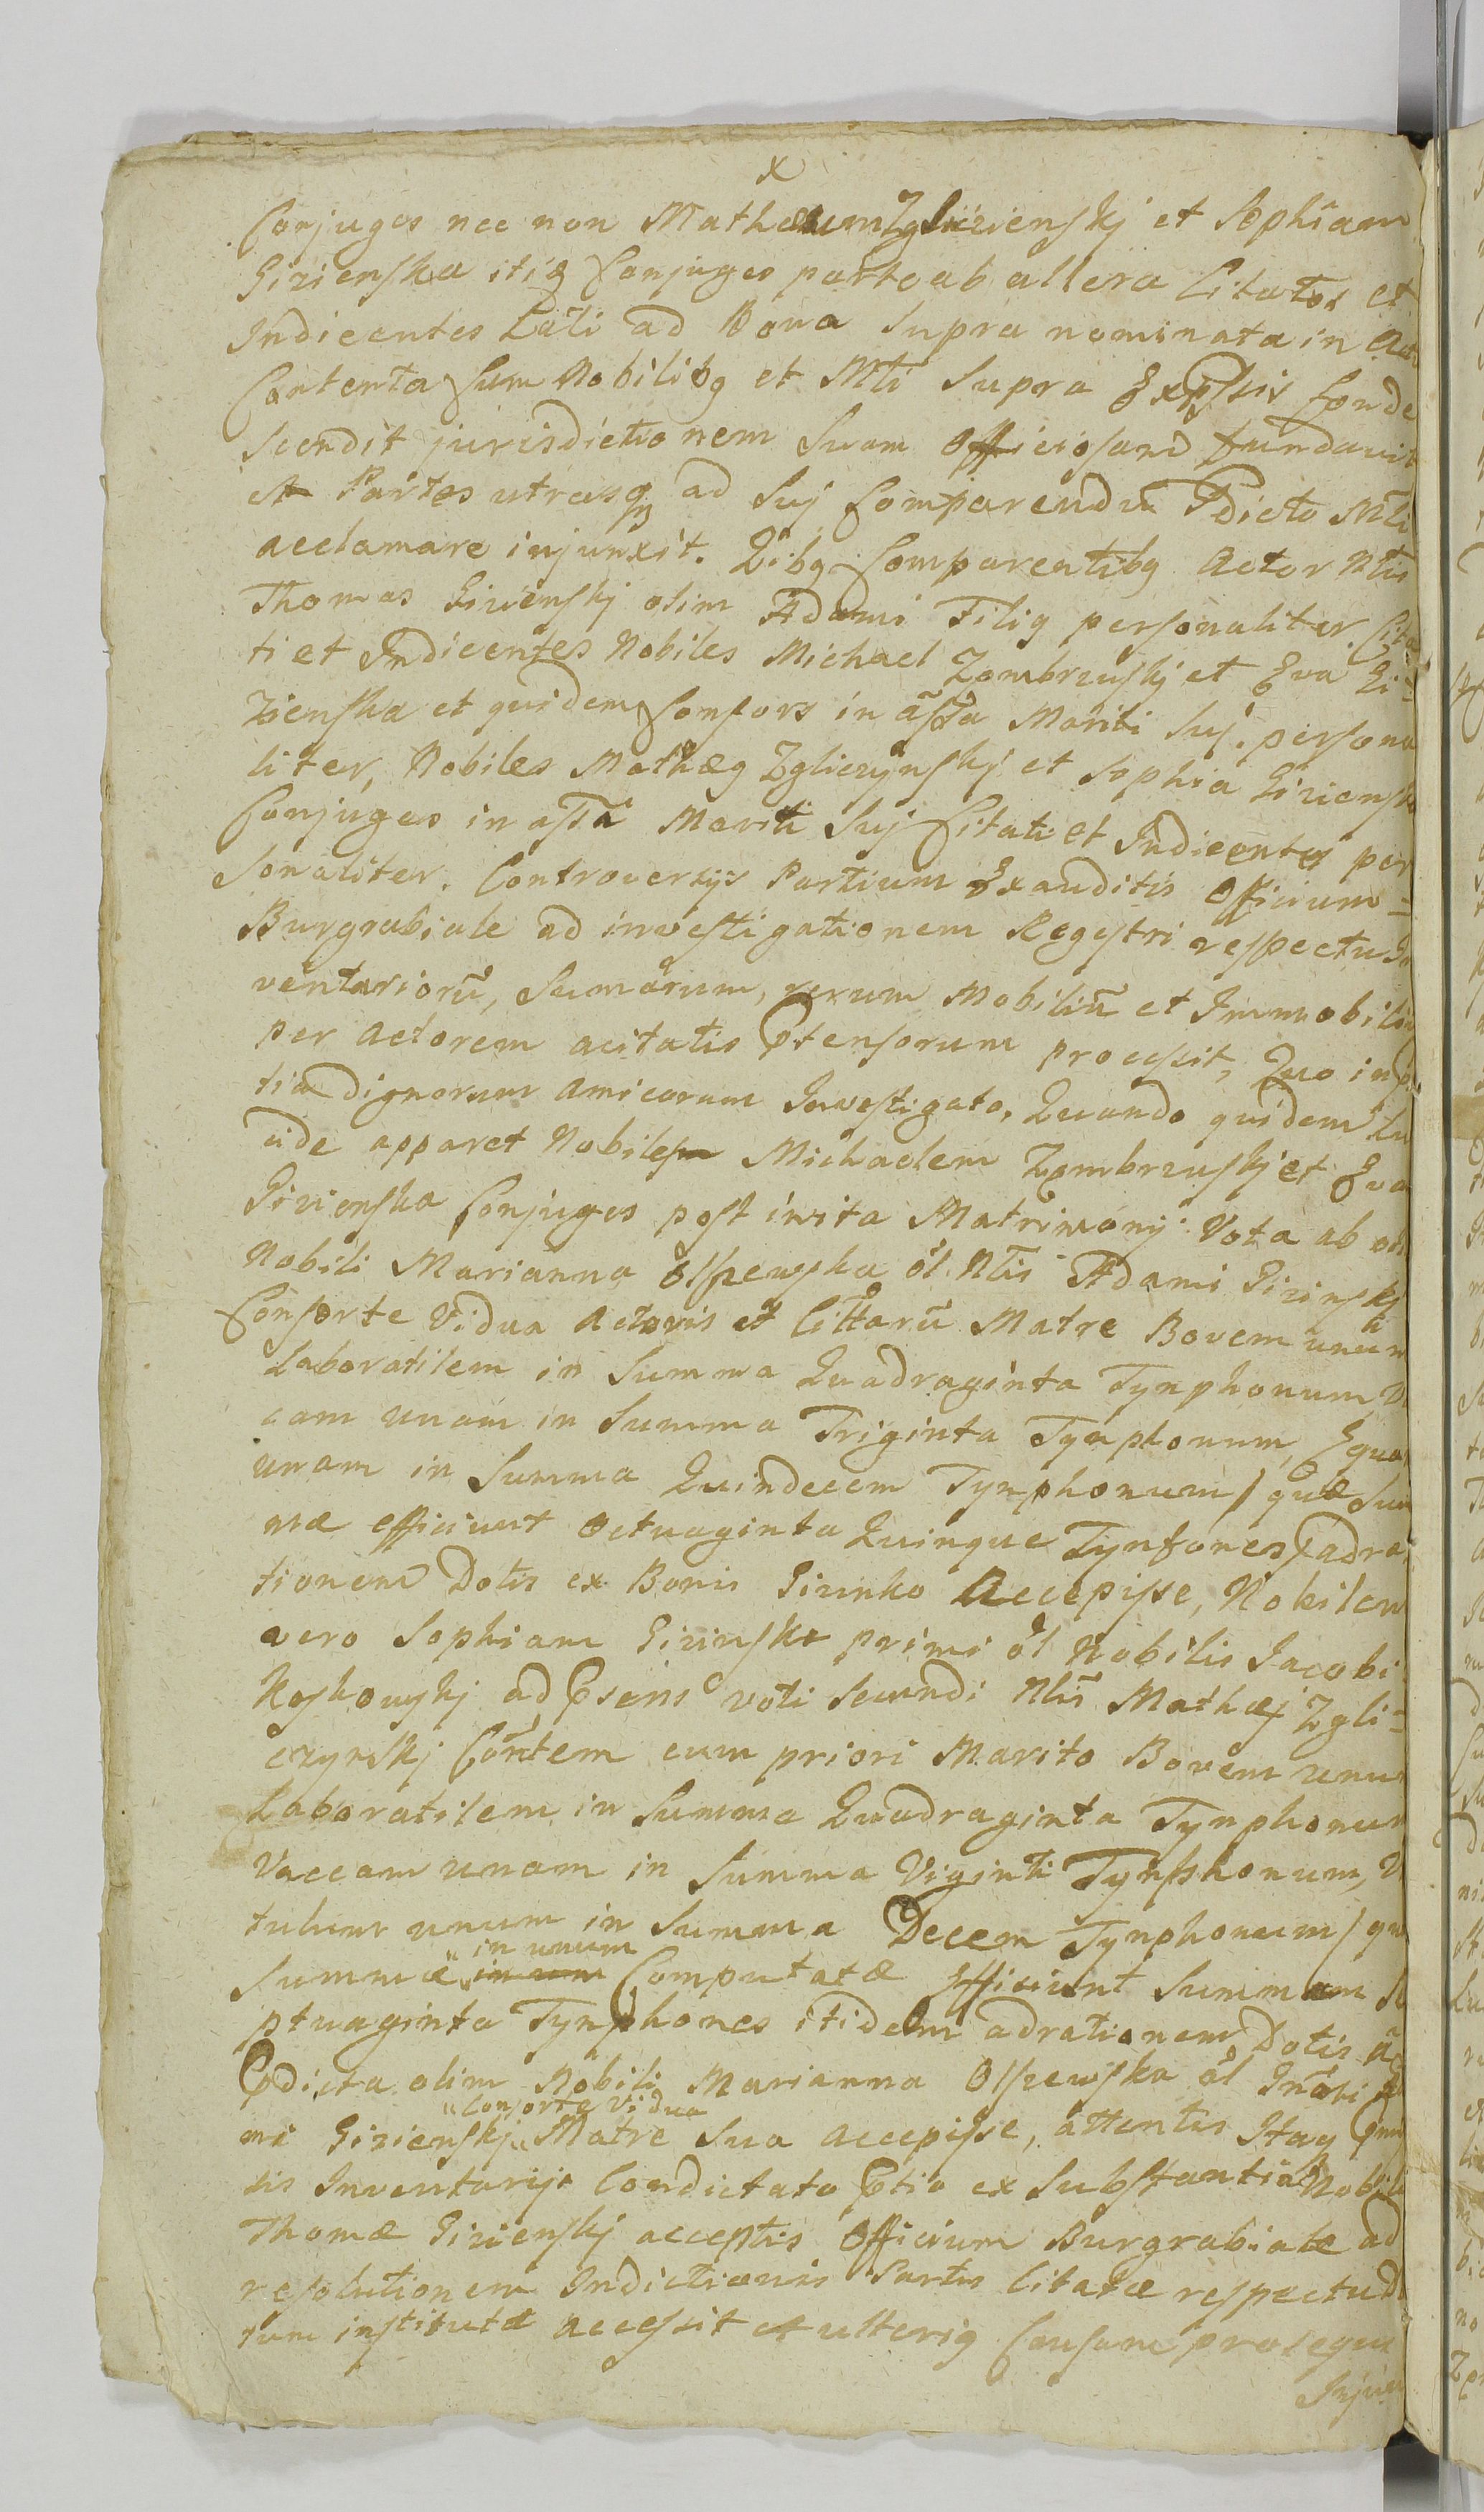 x
Conjuges nec non Mathæum Zgliczienskj et Sophiam
Girienska itiq Conjuges parte ab altera Citatos et
Indicentes Lati ad Bona Supra nominata in Actu
Contenta Cum Nobilibq et Mti Supra Expssis Conde
scendit jurisdictionem Suam Officiosam fundavit
et Partes utrasq ad Suj Comparendū Pdicto Mtli
acclamare injunxit. Qibq Comparentibq Actor Ntis
Thomas Girienskj olim Adami Filiq personaliter. Cita
ti et Indicentes Nobiles Michael Zombrzuskj et Eva Gi=
zienska et quidem Consors in aſſa Mariti Suj. persona
liter, Nobiles Mathæq Zgliczynskj et Sophia Girienska
Conjuges in aſſa Mariti Suj Citati et Indicentes per
sonaliter. Controversijs Partium Exauditis Officium=
Burgrabiale ad investigationem Regestri respectu In
ventariorū, Sumarum, rerum Mobiliū et Immobiliū
per Actorem acitatis Ptensorum processit, Quo in p
tia dignorum Amicorum Investigato, Quando quidem lu
cide apparet Nobilem Michaelem Zombrzuskj et Eva
Girienska Conjuges post inita Matrimonÿ Vota ab oli
Nobili Marianna Olszewska ol Ntis Adami Girinskj
Consorte Vidua Actoris et Cittorū Matre Bovem unum
Laboratilem in Summa Quadraginta Tynphonum Va
cam unam in Summa Triginta Tynphonum, Equam
unam in Summa Quindecem Tynphonum / quæ Sum
mæ efficiunt Octuaginta Quinque Tynfones / adra
tionem Dotis ex Bonis Girinko Accepisse, Nobilem
vero Sophiam Girinska primi ol Nobilis Jacobi
Koskowskj ad Psens voti Secundi Ntis Mathæj Zgli=
czynskj Cōrtem cum priori Marito Bovem unum
Laboratilem in Summa Quadraginta Tynphonum
Vaccam unam in Summa Viginti Tynphonum, Vi
tulum unum in Summa Decem Tynphonum / quæ
Summæ in unum Computatæ Efficiunt Summam Se
ptuaginta Tynphones itidem adrationem Dotis a
Pdicta olim Nobili Marianna Olszewska ol Gnōsi Ada
mi Girienskj Consorte Vidua Matre Sua accepisse, attentis Itaq Pmis
sis Inventarijs Condictato Ptio ex Substantia Nobili
Thomæ Girienskj acceptis Officium Burgrabiale ad
resolutionem Indictionis Partis Citatæ respectu D
rum institutæ accessit et ulteriq Causam prosequi
Injun